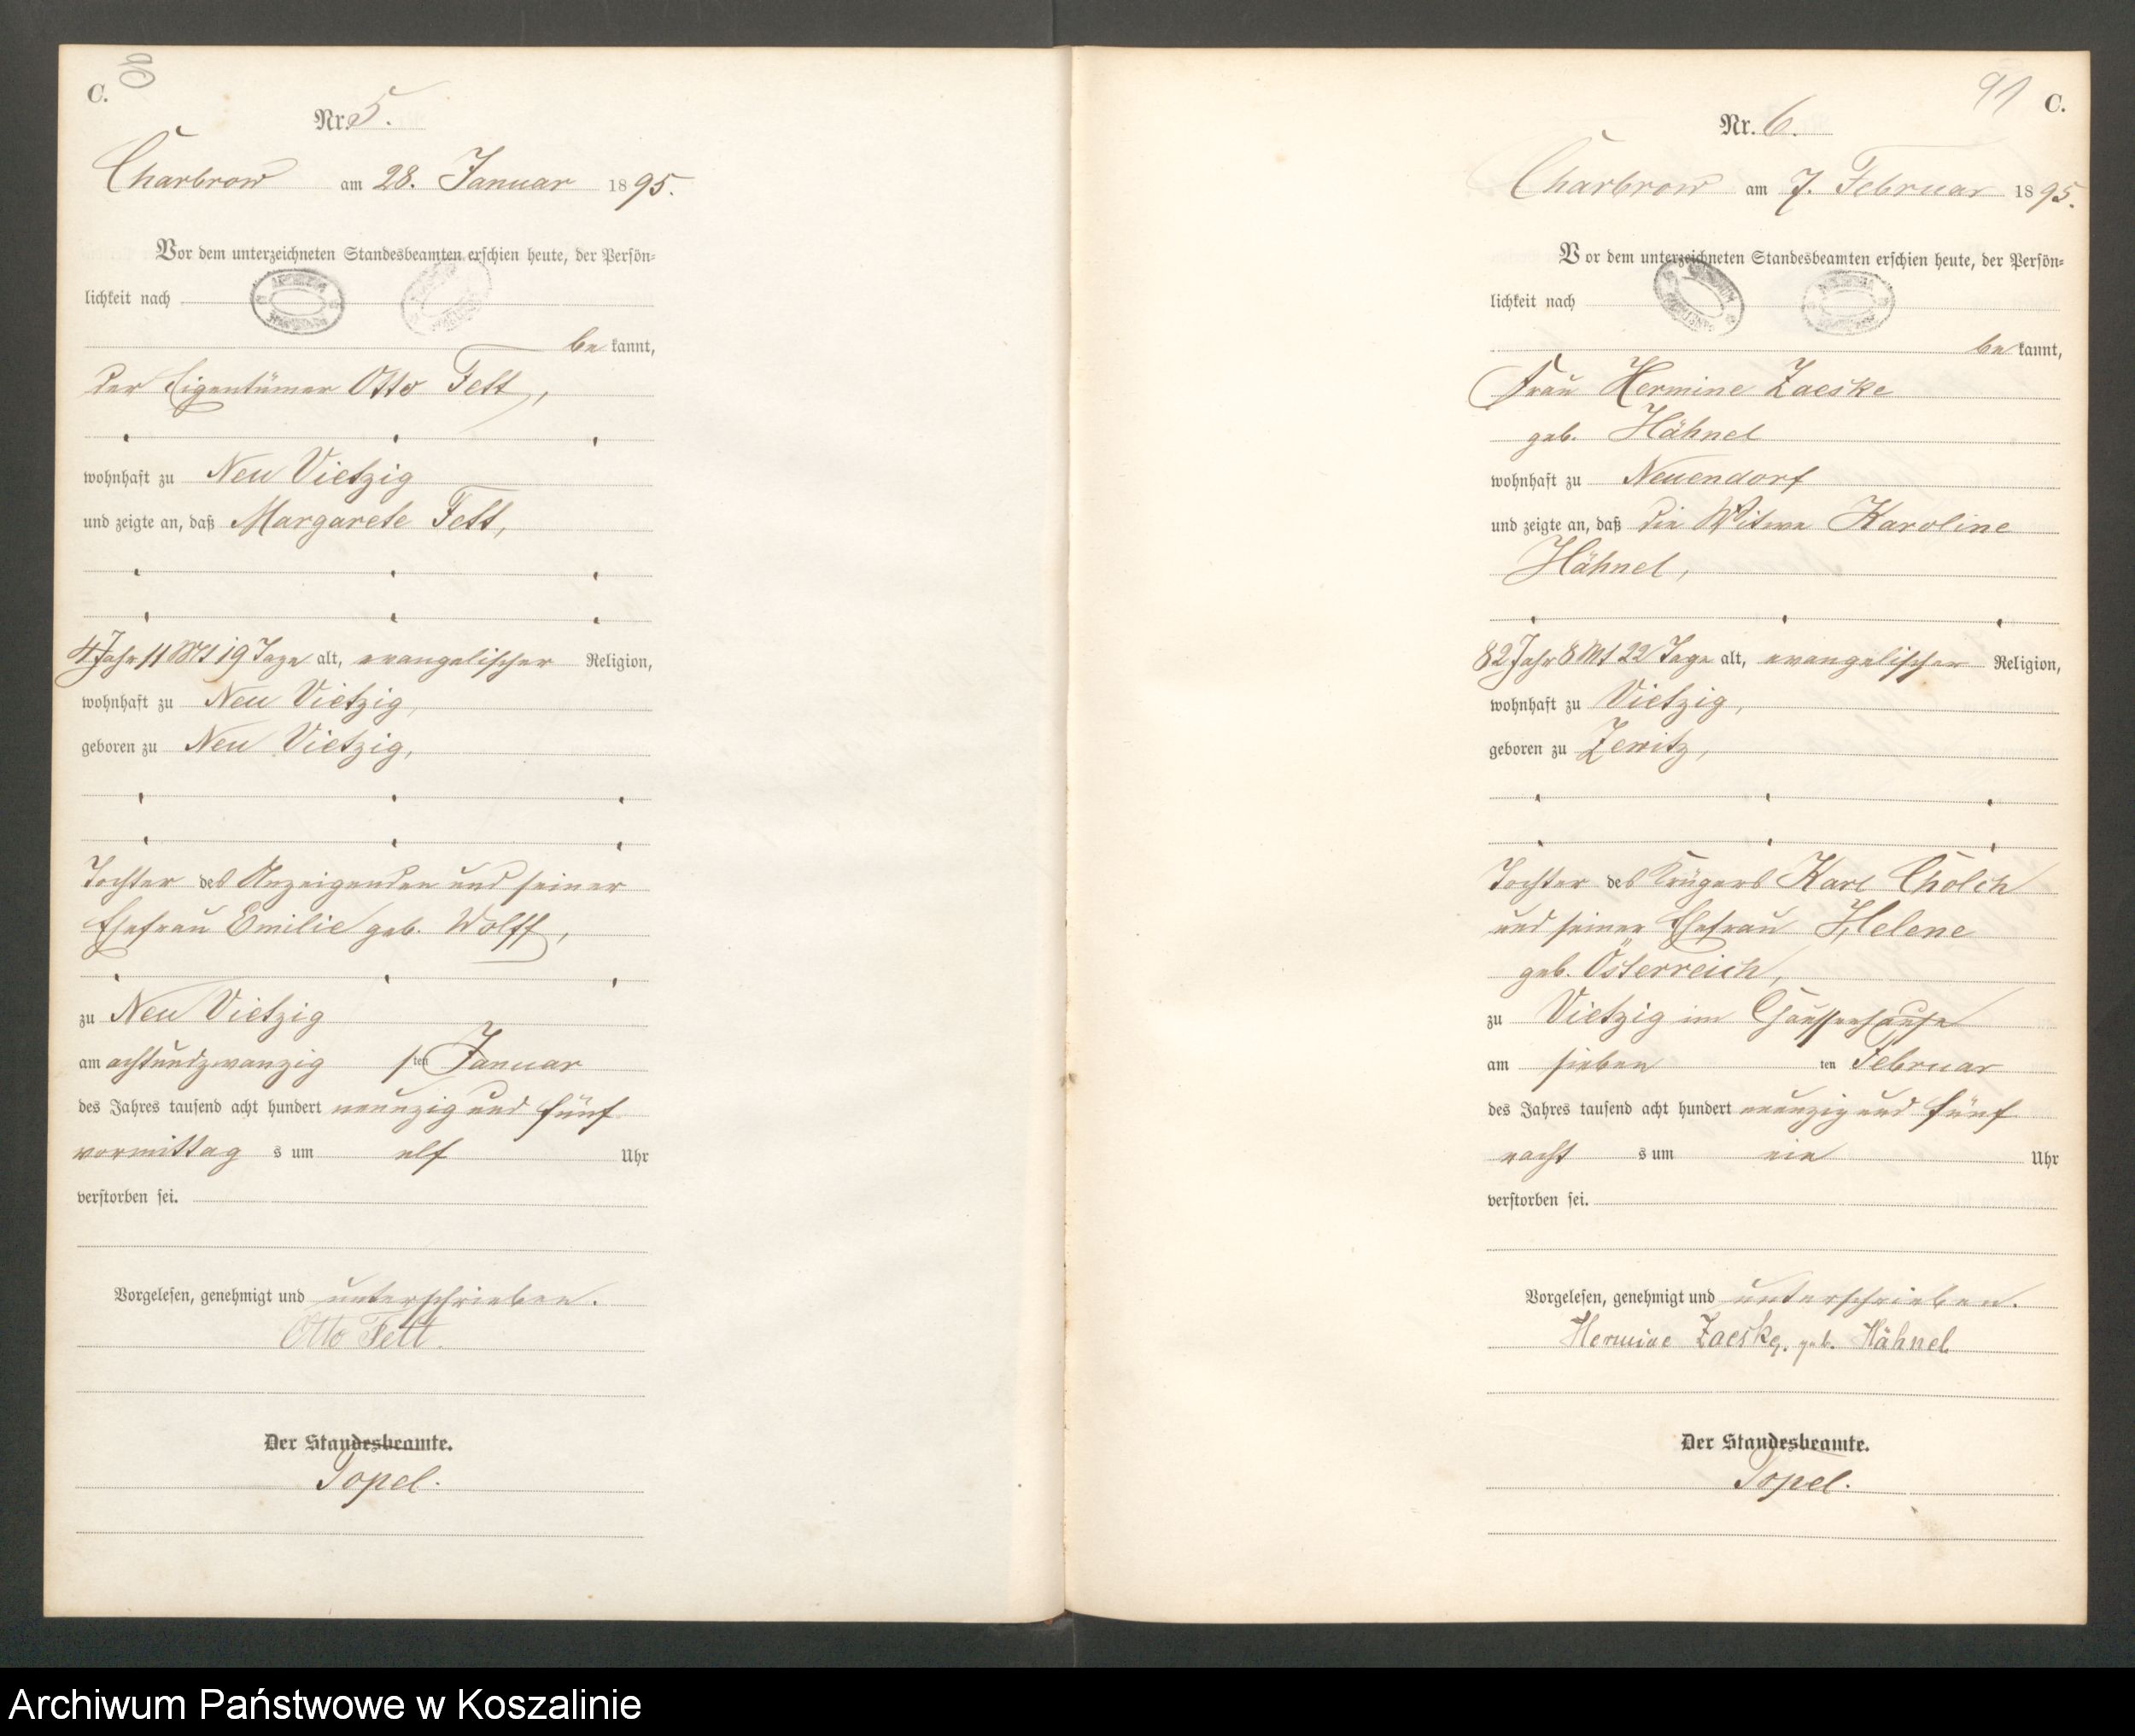 C.
Nr. 5.
Charbrow am 28. Januar 1895.
Vor dem unterzeichneten Standesbeamten erschien heute, der Persön-
lichkeit nach
be kannt,
der Eigentümer Otto Fett,
wohnhaft zu Neu Vietzig
und zeigte an, daß Margarete Fett,
4 Jahr 11 Mt 19 Tage alt, evangelischer Religion,
wohnhaft zu Neu Vietzig,
geboren zu Neu Vietzig,
Tochter des Anzeigenden und seiner
Ehefrau Emilie geb. Wolff,
zu Neu Vietzig
am achtundzwanzig sten Januar
des Jahres tausend acht hundert neunzig und fünf
vormittag s um elf Uhr
verstorben sei.
Vorgelesen, genehmigt und unterschrieben.
Otto Fett.
Der Standesbeamte.
Topel.
91 C.
Nr. 6.
Charbrow am 7. Februar 1895.
Vor dem unterzeichneten Standesbeamten erschien heute, der Persön-
lichkeit nach
be kannt,
Frau Hermine Zaeske
geb. Hähnel
wohnhaft zu Neuendorf
und zeigte an, daß die Witwe Karoline
Hähnel,
82 Jahr 8 Mt 22 Tage alt, evangelischer Religion,
wohnhaft zu Vietzig,
geboren zu Zewitz,
Tochter des Krügers Karl Cholch
und seiner Ehefrau Helene
geb. Österreich,
zu Vietzig im Chausseehause
am sieben ten Februar
des Jahres tausend acht hundert neunzig und fünf
nacht s um ein Uhr
verstorben sei.
Vorgelesen, genehmigt und unterschrieben.
Hermine Zaeske, geb. Hähnel
Der Standesbeamte.
Topel.
Archiwum Państwowe w Koszalinie